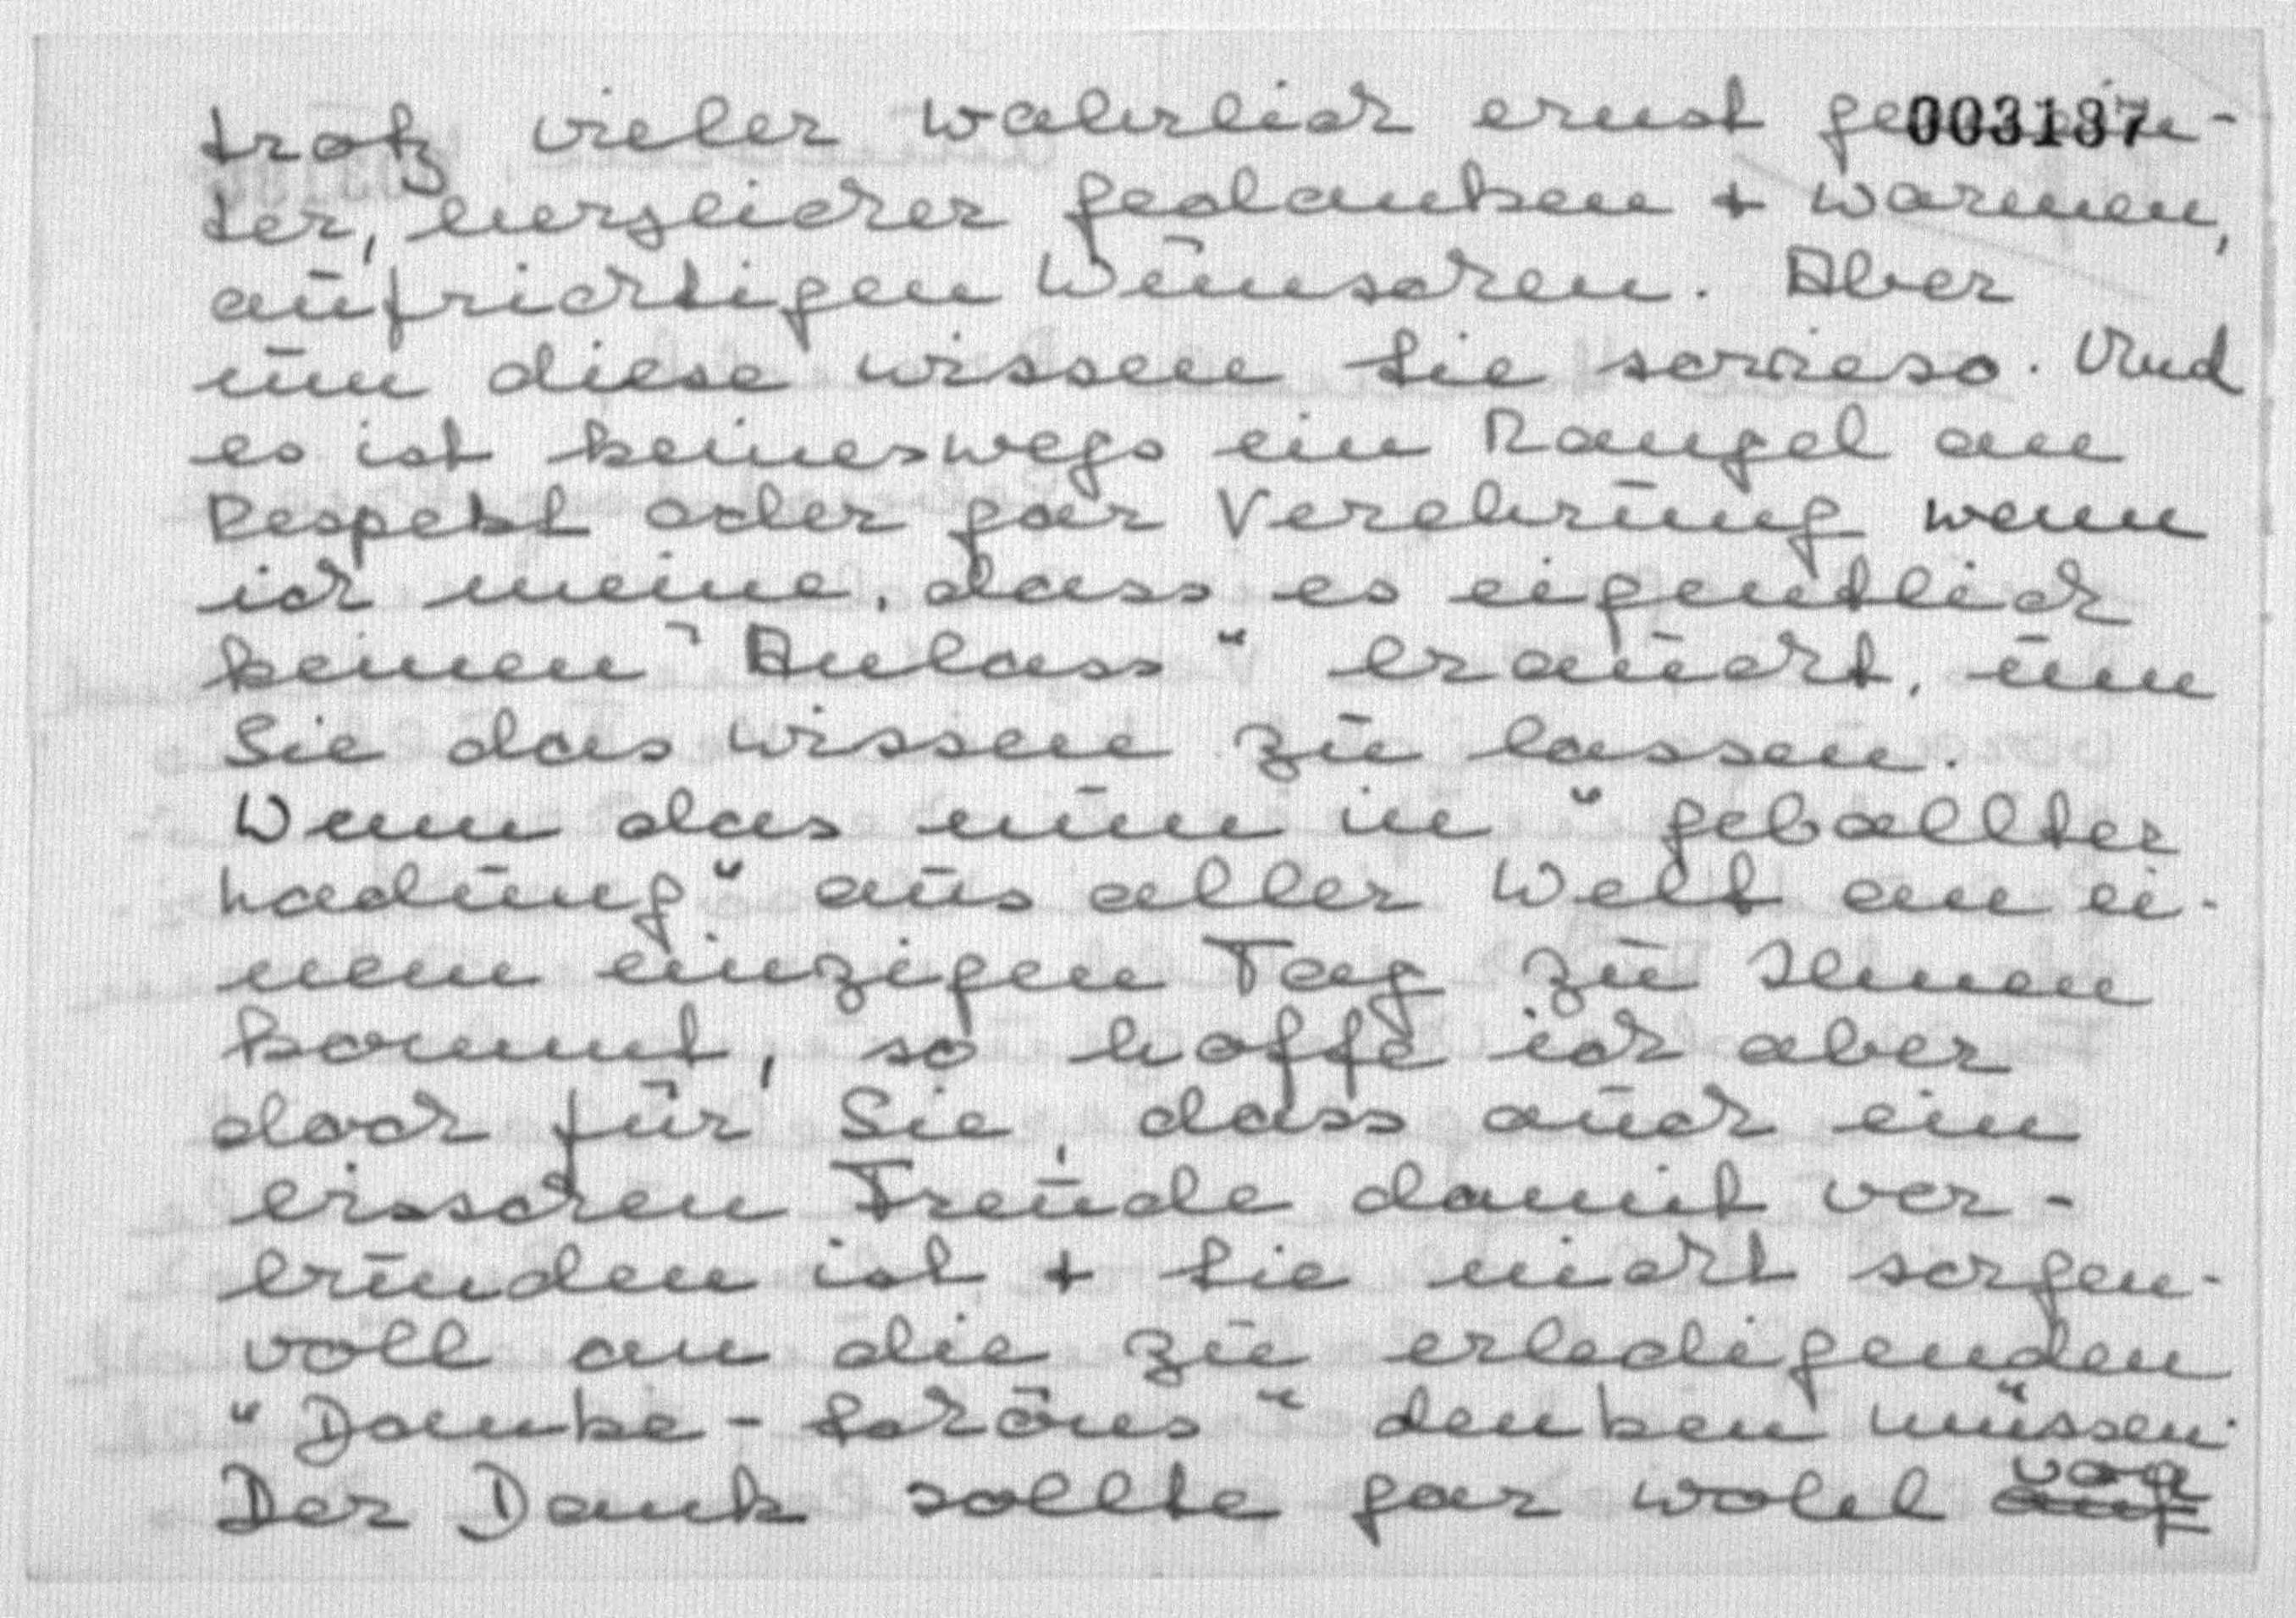 trotz vieler wahrlich ernst gemein- 003187
ter, herzlicher Gedanken + warmen,
aufrichtigen Wünschen. Aber
um diese wissen Sie sowieso. Und
es ist keineswegs ein Mangel an
Respekt oder gar Verehrung wenn
ich meine, dass es eigentlich
keinen "Anlass" braucht, um
Sie das wissen zu lassen.
Wenn das nun in "geballter
Ladung" aus aller Welt an ei-
nem einzigen Tag zu Ihnen
kommt, so hoffe ich aber
doch für Sie, dass auch ein
bisschen Freude damit ver-
bunden ist + Sie nicht sorgen-
voll an die zu erledigenden
"Danke-schöns" denken müssen.
Der Dank sollte gar wohl von